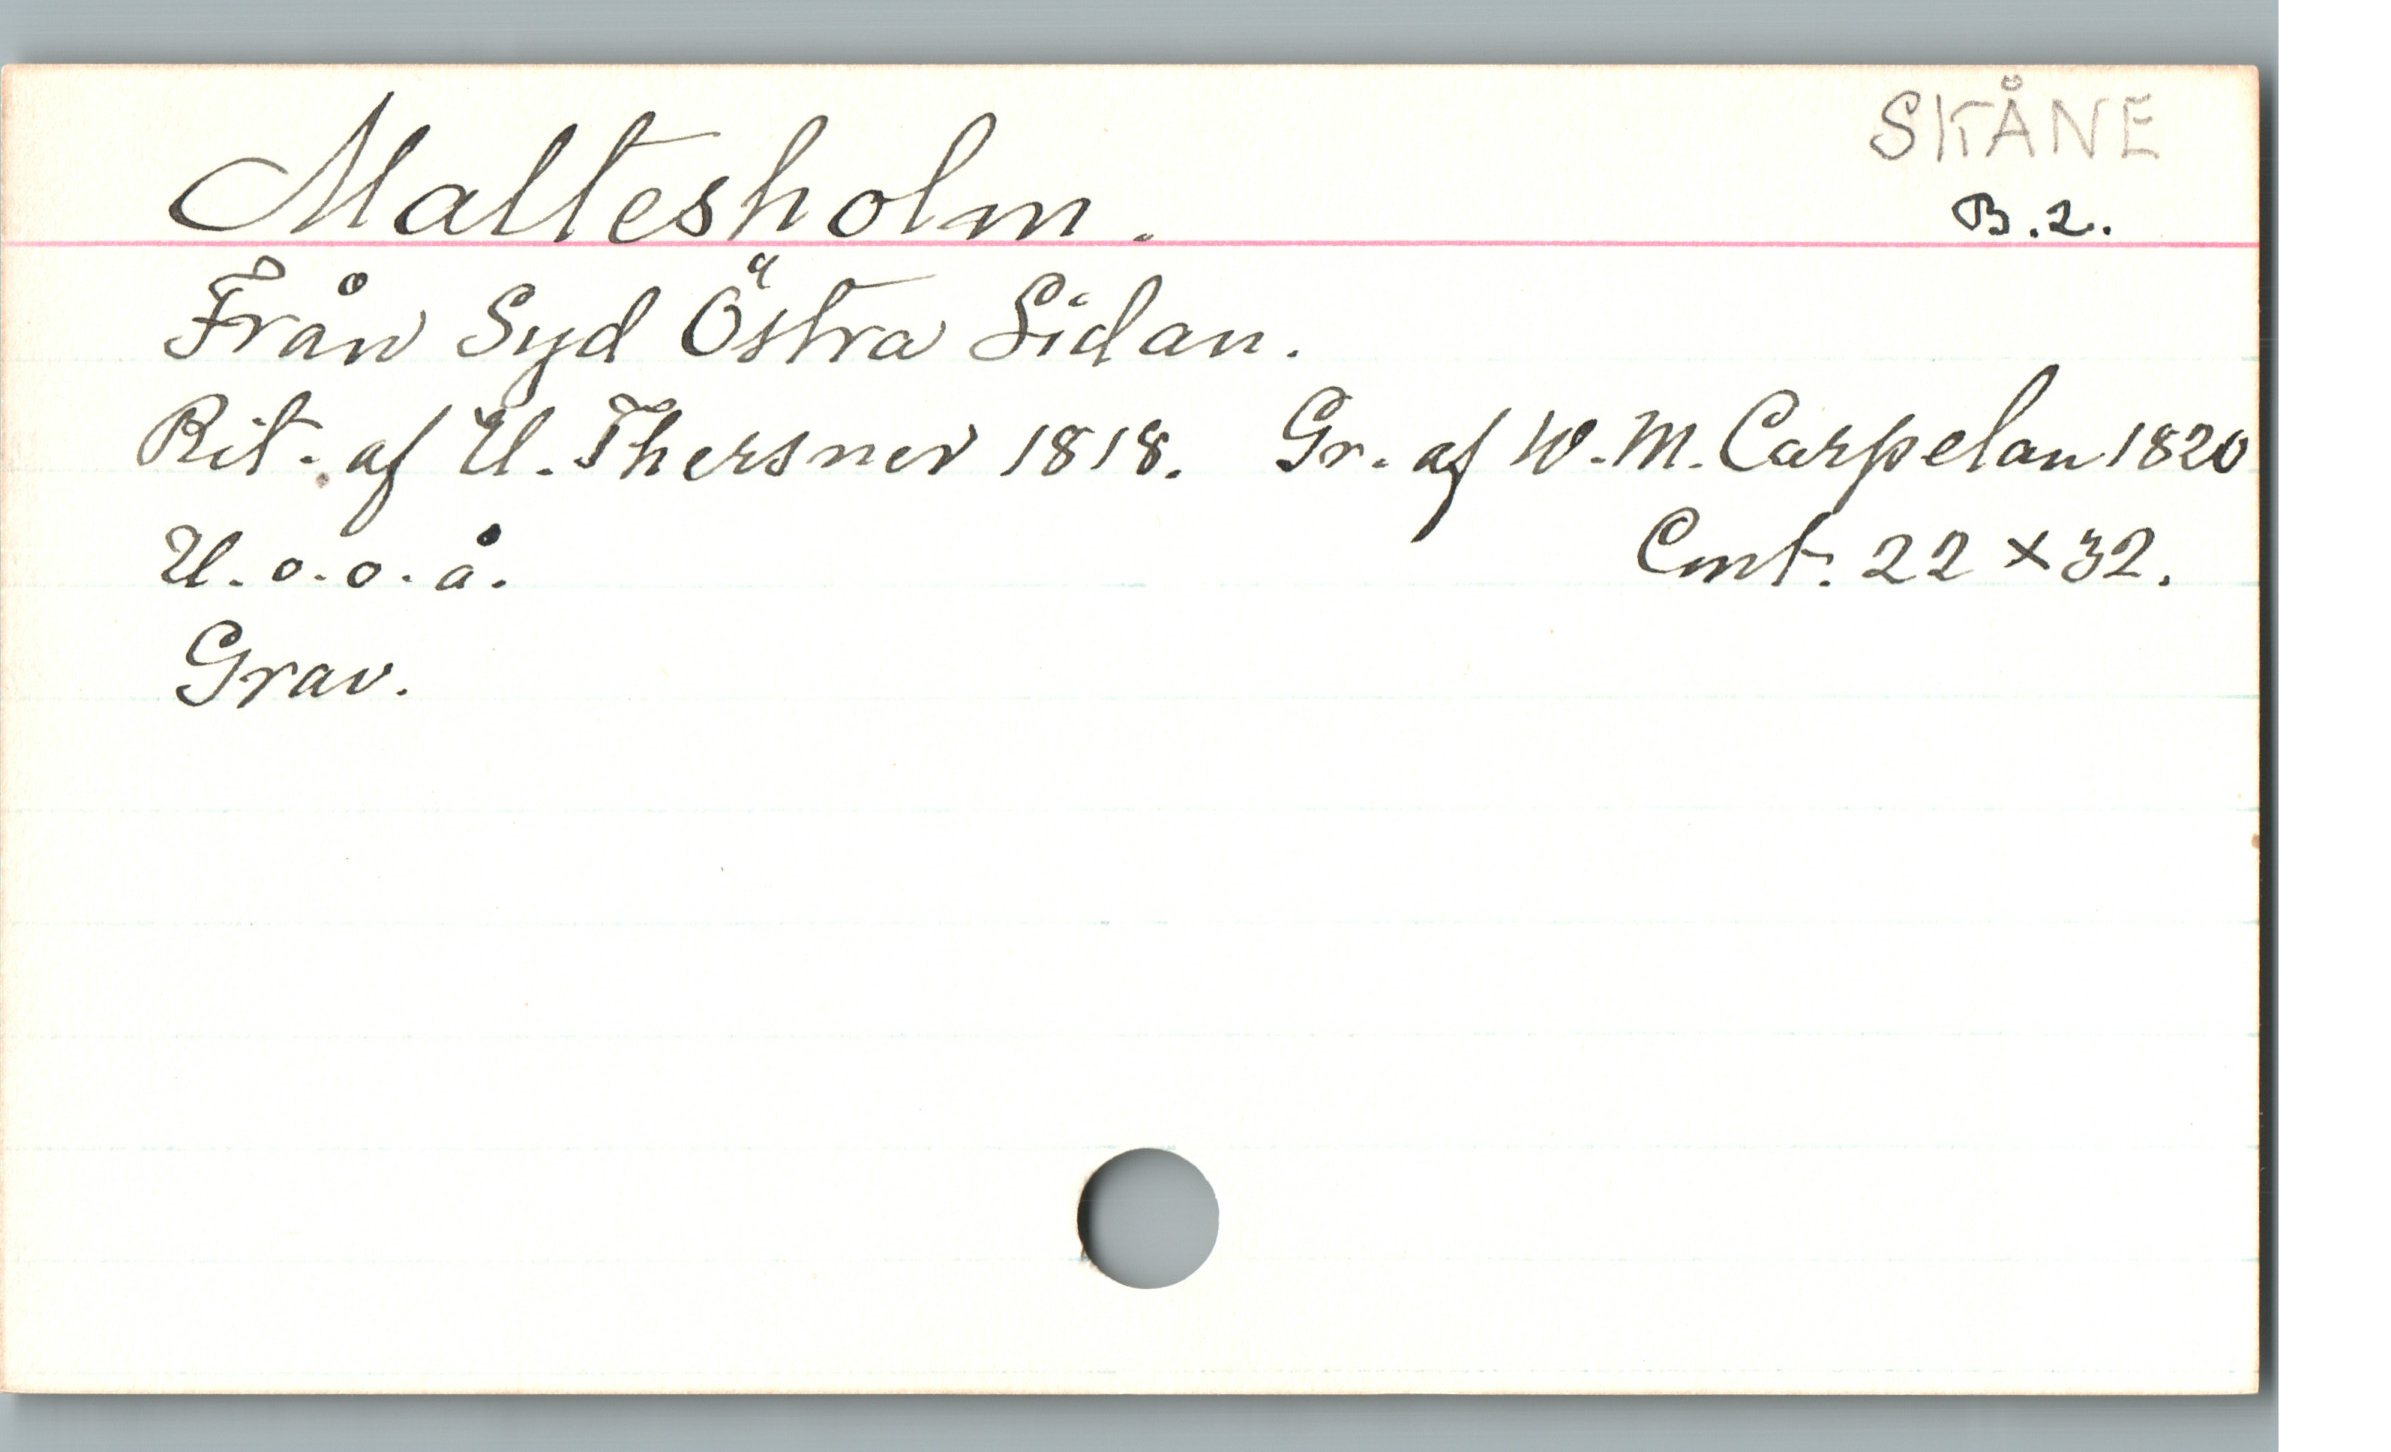 SKÅNE
Maltesholm. B.2.
Från Syd Östra Sidan.
Rit. af U. Thersner 1818. Gr. af W. M. Carpelan 1820
U. o. o. å. Cmt. 22 × 32.
Grav.